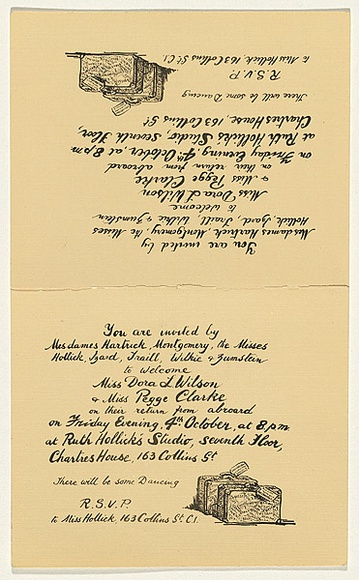 You are invited by
Mesdames Hartrick, Montgomery, the Misses
Hollick, Izard, Traill, Wilkie & Zumstein
to welcome
Miss Dora L Wilson
& Miss Pegge Clarke
on their return from abroad
on Friday Evening, 4th October, at 8 pm
at Ruth Hollick's Studio, Seventh Floor,
Chartres House, 163 Collins St
There will be some Dancing
R.S.V.P.
to Miss Hollick, 163 Collins St. C1.
You are invited by
Mesdames Hartrick, Montgomery, the Misses
Hollick, Izard, Traill, Wilkie & Zumstein
to welcome
Miss Dora L Wilson
& Miss Pegge Clarke
on their return from abroad
on Friday Evening, 4th October, at 8 pm
at Ruth Hollick's Studio, Seventh Floor,
Chartres House, 163 Collins St
There will be some Dancing
R.S.V.P.
to Miss Hollick, 163 Collins St. C1.